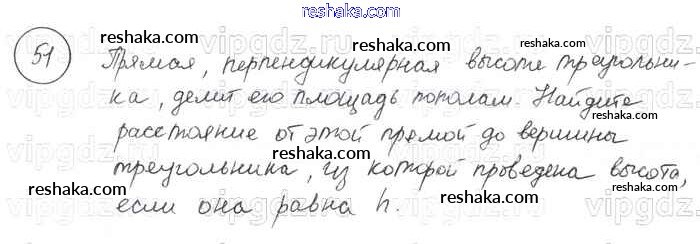 reshaka.com
51 Прямая, перпендикулярная высоте треугольни-
ка, делит его площадь пополам. Найдите
расстояние от этой прямой до вершины
треугольника, из которой проведена высота,
если она равна h.
reshaka.com
reshaka.com
reshaka.com
reshaka.com
reshaka.com
reshaka.com
reshaka.com
reshaka.com
reshaka.com
vipgdz.ru
vipgdz.ru
vipgdz.ru